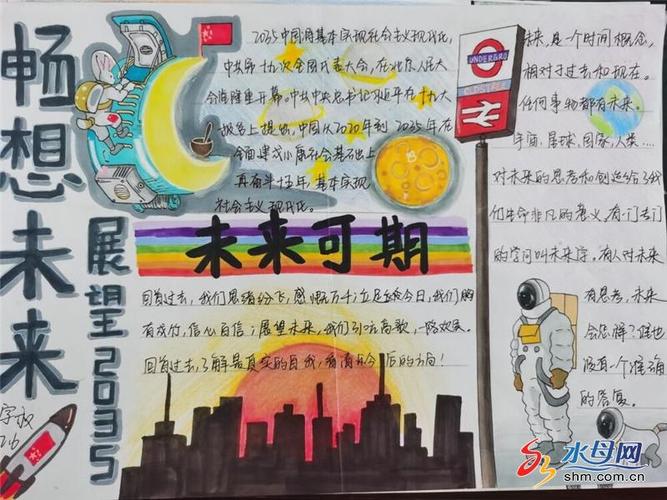 畅想未来
展望2035
2035中国将基本实现社会主义现代化,
中共第十九次全国代表大会,在北京人民大
会堂隆重开幕。中共中央总书记习近平在十九大
报告上提出,中国从2020年到2035年在
全面建成小康社会基础上
再奋斗十五年,基本实现
社会主义现代化。
未来可期
回首过去,我们思绪纷飞,感慨万千;立足于今日,我们胸
有成竹,信心百倍;展望未来,我们引吭高歌,一路欢笑。
回首过去,了解最真实的自我,看清今后的方向!
UNDERGRO
未来,是一个时间概念,
相对于过去和现在。
任何事物都有未来。
宇宙、星球、国家、人类....
对未来的思考和创造给了我
们生命非凡的意义。有一门专门
的学问叫未来学。有人对未来
有思考,未来
会怎样?谁也
没有一个准确
的答复。
水母网
shm.com.cn